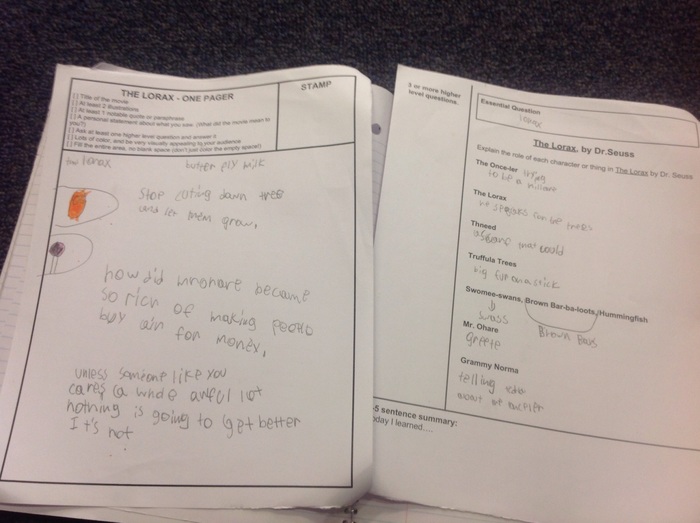 THE LORAX - ONE PAGER
STAMP
[ ] Title of the movie
[ ] At least 2 illustrations
[ ] At least 1 notable quote or paraphrase
[ ] A personal statement about what you saw. (What did the movie mean to you?)
[ ] Ask at least one higher level question and answer it
[ ] Lots of color, and be very visually appealing to your audience
[ ] Fill the entire area, no blank space (don't just color the empty space!)
the lorax
butter fly milk
Stop cuting down trees
and let them grow.
how did mrohare became
so rich of making people
buy air for money.
unless someone like you
cares a whole awful lot
nothing is going to get better
It's not
3 or more higher
level questions.
Essential Question
lorax
The Lorax, by Dr.Seuss
Explain the role of each character or thing in The Lorax by Dr. Seuss
The Once-ler trying
to be a
The Lorax
he speaks for the trees
Thneed
that could
Truffula Trees
big fur on a stick
Swomee-swans, Brown Bar-ba-loots, Hummingfish
swass
Brown Bars
Mr. Ohare
greete
Grammy Norma
telling
about the oncler
-5 sentence summary:
oday I learned....